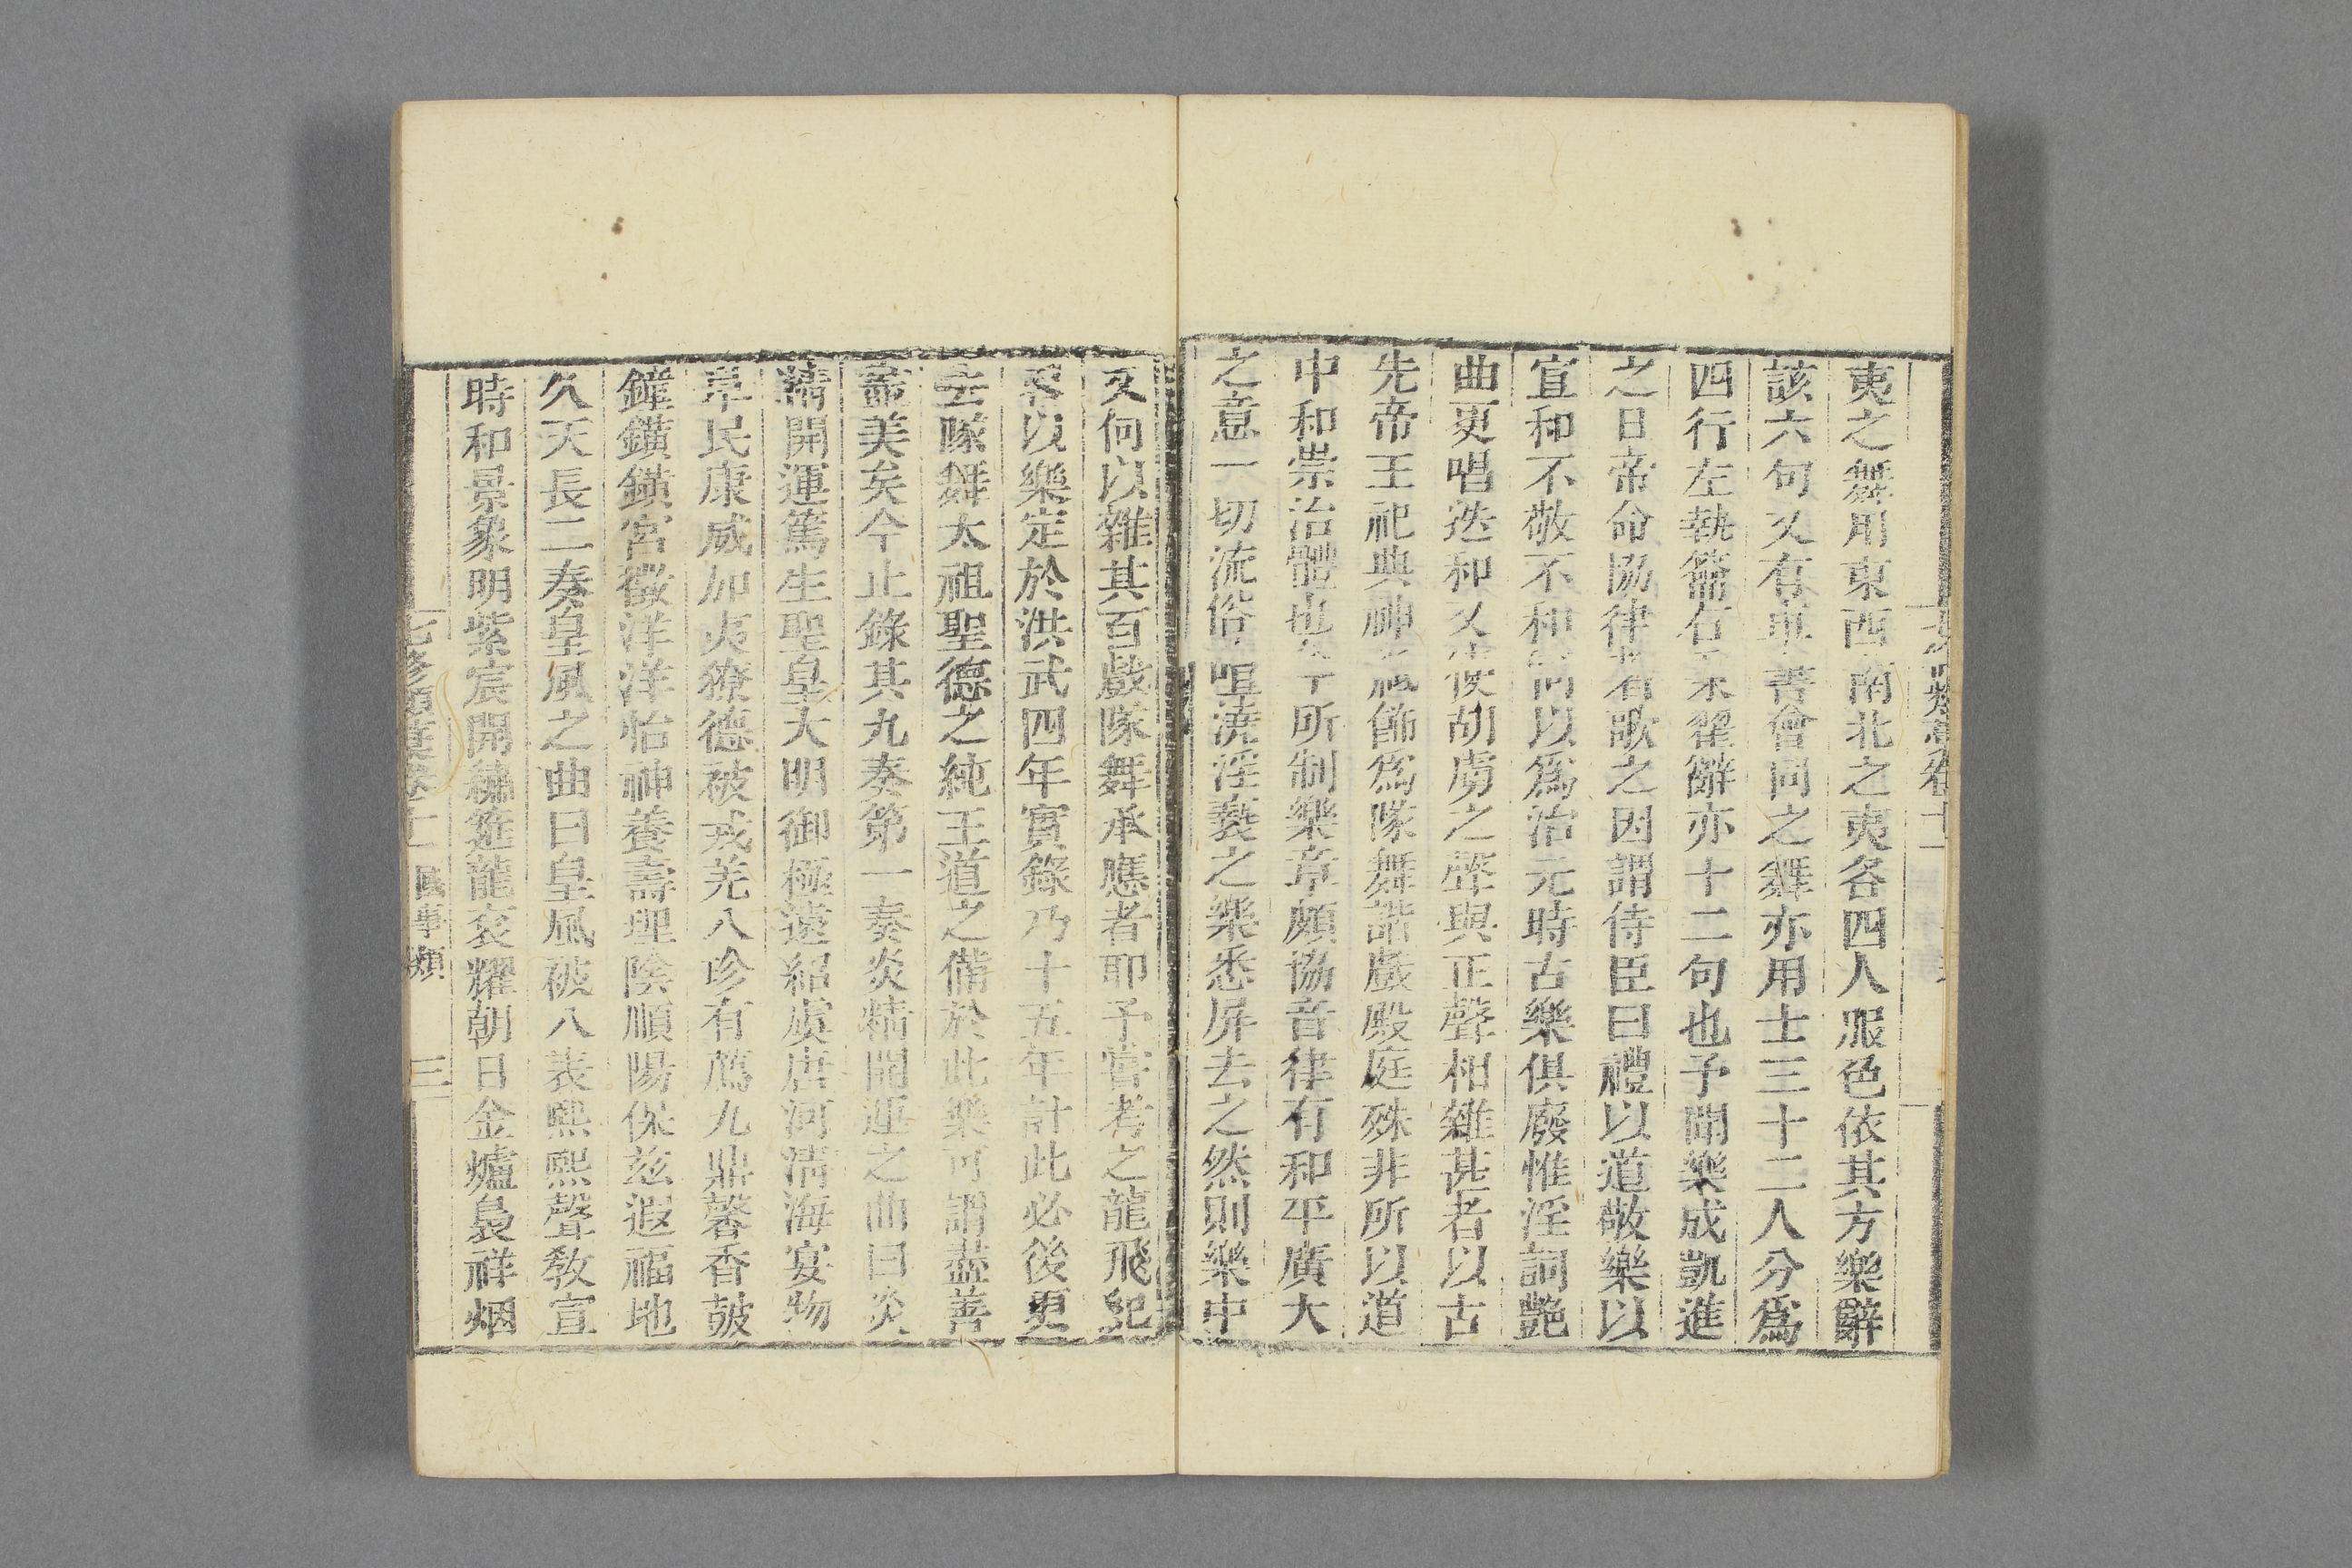 夷之舞用東西南北之夷各四人服色依其方樂辭
該六句又有車書會同之舞亦用士三十二人分爲
四行左執籥右秉翟辭亦十二句也予聞樂成凱進
之日帝命協律者歌之因謂侍臣曰禮以道敬樂以
宣和不敬不和何以爲治元時古樂俱廢惟淫詞艷
曲更唱迭和又使胡虜之聲與正聲相雜甚者以古
先帝王祀典神祇飾爲隊舞諧戲殿庭殊非所以道
中和崇治體也今所制樂章頗協音律有和平廣大
之意一切流俗諠譊淫䙝之樂悉屏去之然則樂中
又何以雜其百戲隊舞承應者耶予嘗考之龍飛紀
畧以樂定於洪武四年實錄乃十五年計此必後更
去隊舞太祖聖德之純王道之備於此樂可謂盡善
盡美矣今止錄其九奏第一奏炎精開運之曲曰炎
精開運篤生聖皇大明御極遠紹虞唐河清海宴物
阜民康威加夷獠德被戎羌八珍有薦九鼎馨香皷
鐘鐄鐄宮徵洋洋怡神養壽理陰順陽保兹遐福地
久天長二奏皇風之曲曰皇風被八表熙熙聲敎宣
時和景象明紫宸開繡筵龍衮耀朝日金爐裊祥烟
七修類藁卷十二 國事類 三